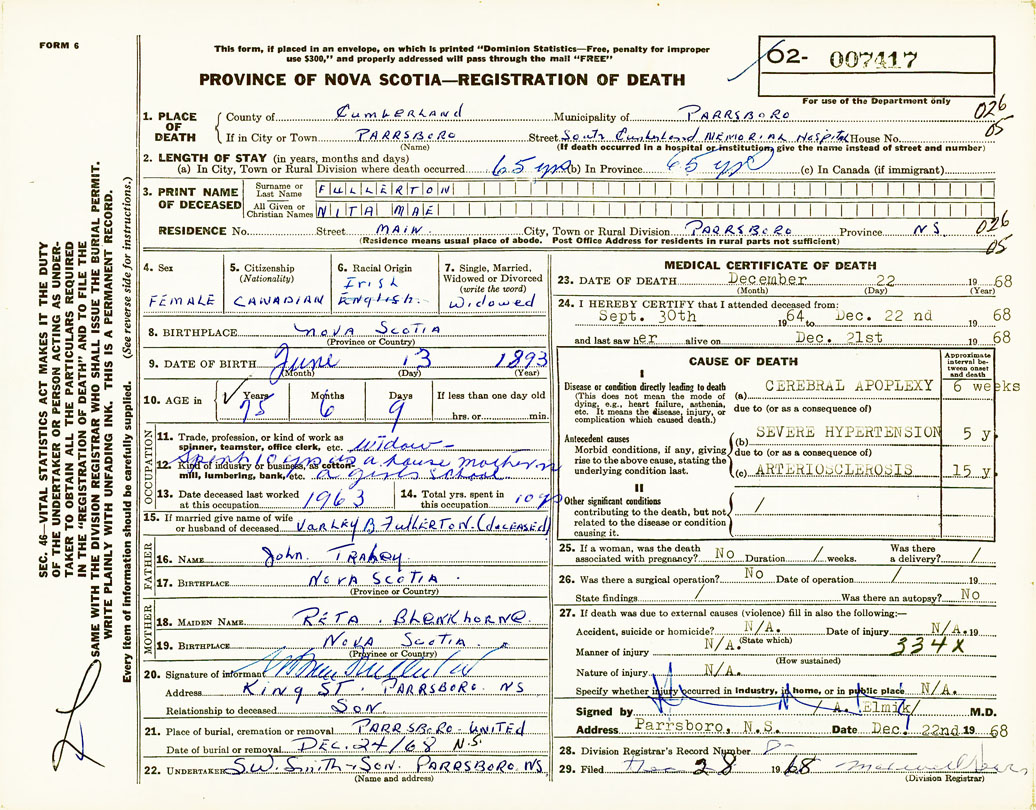 FORM 6
This form, if placed in an envelope, on which is printed "Dominion Statistics—Free, penalty for improper
use $300," and properly addressed will pass through the mail "FREE"
PROVINCE OF NOVA SCOTIA—REGISTRATION OF DEATH
62- 007417
For use of the Department only
1. PLACE OF DEATH
County of CUMBERLAND Municipality of PARRSBORO 026
If in City or Town PARRSBORO Street South Cumberland MEMORIAL Hospital House No. 05
(Name) (If death occurred in a hospital or institution, give the name instead of street and number)
2. LENGTH OF STAY (in years, months and days)
(a) In City, Town or Rural Division where death occurred 65 yrs (b) In Province 65 yrs (c) In Canada (if immigrant)
3. PRINT NAME OF DECEASED
Surname or Last Name FULLERTON
All Given or Christian Names NITA MAE
RESIDENCE No. Street MAIN City, Town or Rural Division PARRSBORO Province NS 026
(Residence means usual place of abode. Post Office Address for residents in rural parts not sufficient) 05
4. Sex FEMALE
5. Citizenship (Nationality) CANADIAN
6. Racial Origin Irish English
7. Single, Married, Widowed or Divorced (write the word) Widowed
8. BIRTHPLACE NOVA SCOTIA
(Province or Country)
9. DATE OF BIRTH June 13 1893
(Month) (Day) (Year)
10. AGE in Years 75 Months 6 Days 9 If less than one day old hrs. or min.
OCCUPATION
11. Trade, profession, or kind of work as
spinner, teamster, office clerk, etc. Widow
12. Kind of industry or business, as cotton
mill, lumbering, bank, etc.
Spent 10 yrs as a house mother in
a girls school
13. Date deceased last worked at this occupation 1963
14. Total yrs. spent in this occupation 10 yrs
15. If married give name of wife
or husband of deceased VARLEY B FULLERTON. (deceased)
FATHER
16. NAME John. TRAHEY
17. BIRTHPLACE NOVA SCOTIA
(Province or Country)
MOTHER
18. MAIDEN NAME RETA. BLENKHORNE.
19. BIRTHPLACE NOVA SCOTIA
(Province or Country)
20. Signature of informant
Address KING ST. PARRSBORO. NS
Relationship to deceased SON.
21. Place of burial, cremation or removal PARRSBORO-UNITED
Date of burial or removal DEC. 24/68 N.S.
22. UNDERTAKER S.W. Smith & Son. PARRSBORO. NS
(Name and address)
MEDICAL CERTIFICATE OF DEATH
23. DATE OF DEATH December 22 1968
(Month) (Day) (Year)
24. I HEREBY CERTIFY that I attended deceased from:
Sept. 30th 1964 to Dec. 22 nd 1968
and last saw her alive on Dec. 21st 1968
CAUSE OF DEATH
Approximate interval between onset and death
I
Disease or condition directly leading to death
(This does not mean the mode of
dying, e.g., heart failure, asthenia,
etc. It means the disease, injury, or
complication which caused death.)
(a) CEREBRAL APOPLEXY 6 weeks
due to (or as a consequence of)
Antecedent causes
Morbid conditions, if any, giving
rise to the above cause, stating the
underlying condition last.
(b) SEVERE HYPERTENSION 5 y.
due to (or as a consequence of)
(c) ARTERIOSCLEROSIS 15 y.
II
Other significant conditions
contributing to the death, but not
related to the disease or condition
causing it.
/
25. If a woman, was the death
associated with pregnancy? No Duration / weeks. Was there a delivery? /
26. Was there a surgical operation? No Date of operation / 19
State findings / Was there an autopsy? No
27. If death was due to external causes (violence) fill in also the following:—
Accident, suicide or homicide? N/A. Date of injury N/A. 19
(State which)
Manner of injury N/A. 334X
(How sustained)
Nature of injury N/A.
Specify whether injury occurred in industry, in home, or in public place N/A.
Signed by /A. Elmik/ M.D.
Address Parrsboro, N.S. Date Dec. 22nd 1968
28. Division Registrar's Record Number
29. Filed Dec 28 1968
(Division Registrar)
SEC. 46—VITAL STATISTICS ACT MAKES IT THE DUTY
OF THE UNDERTAKER OR PERSON ACTING AS UNDER-
TAKER TO OBTAIN ALL THE PARTICULARS REQUIRED
IN THE "REGISTRATION OF DEATH" AND TO FILE THE
SAME WITH THE DIVISION REGISTRAR WHO SHALL ISSUE THE BURIAL PERMIT.
WRITE PLAINLY WITH UNFADING INK. THIS IS A PERMANENT RECORD.
Every item of information should be carefully supplied. (See reverse side for instructions.)